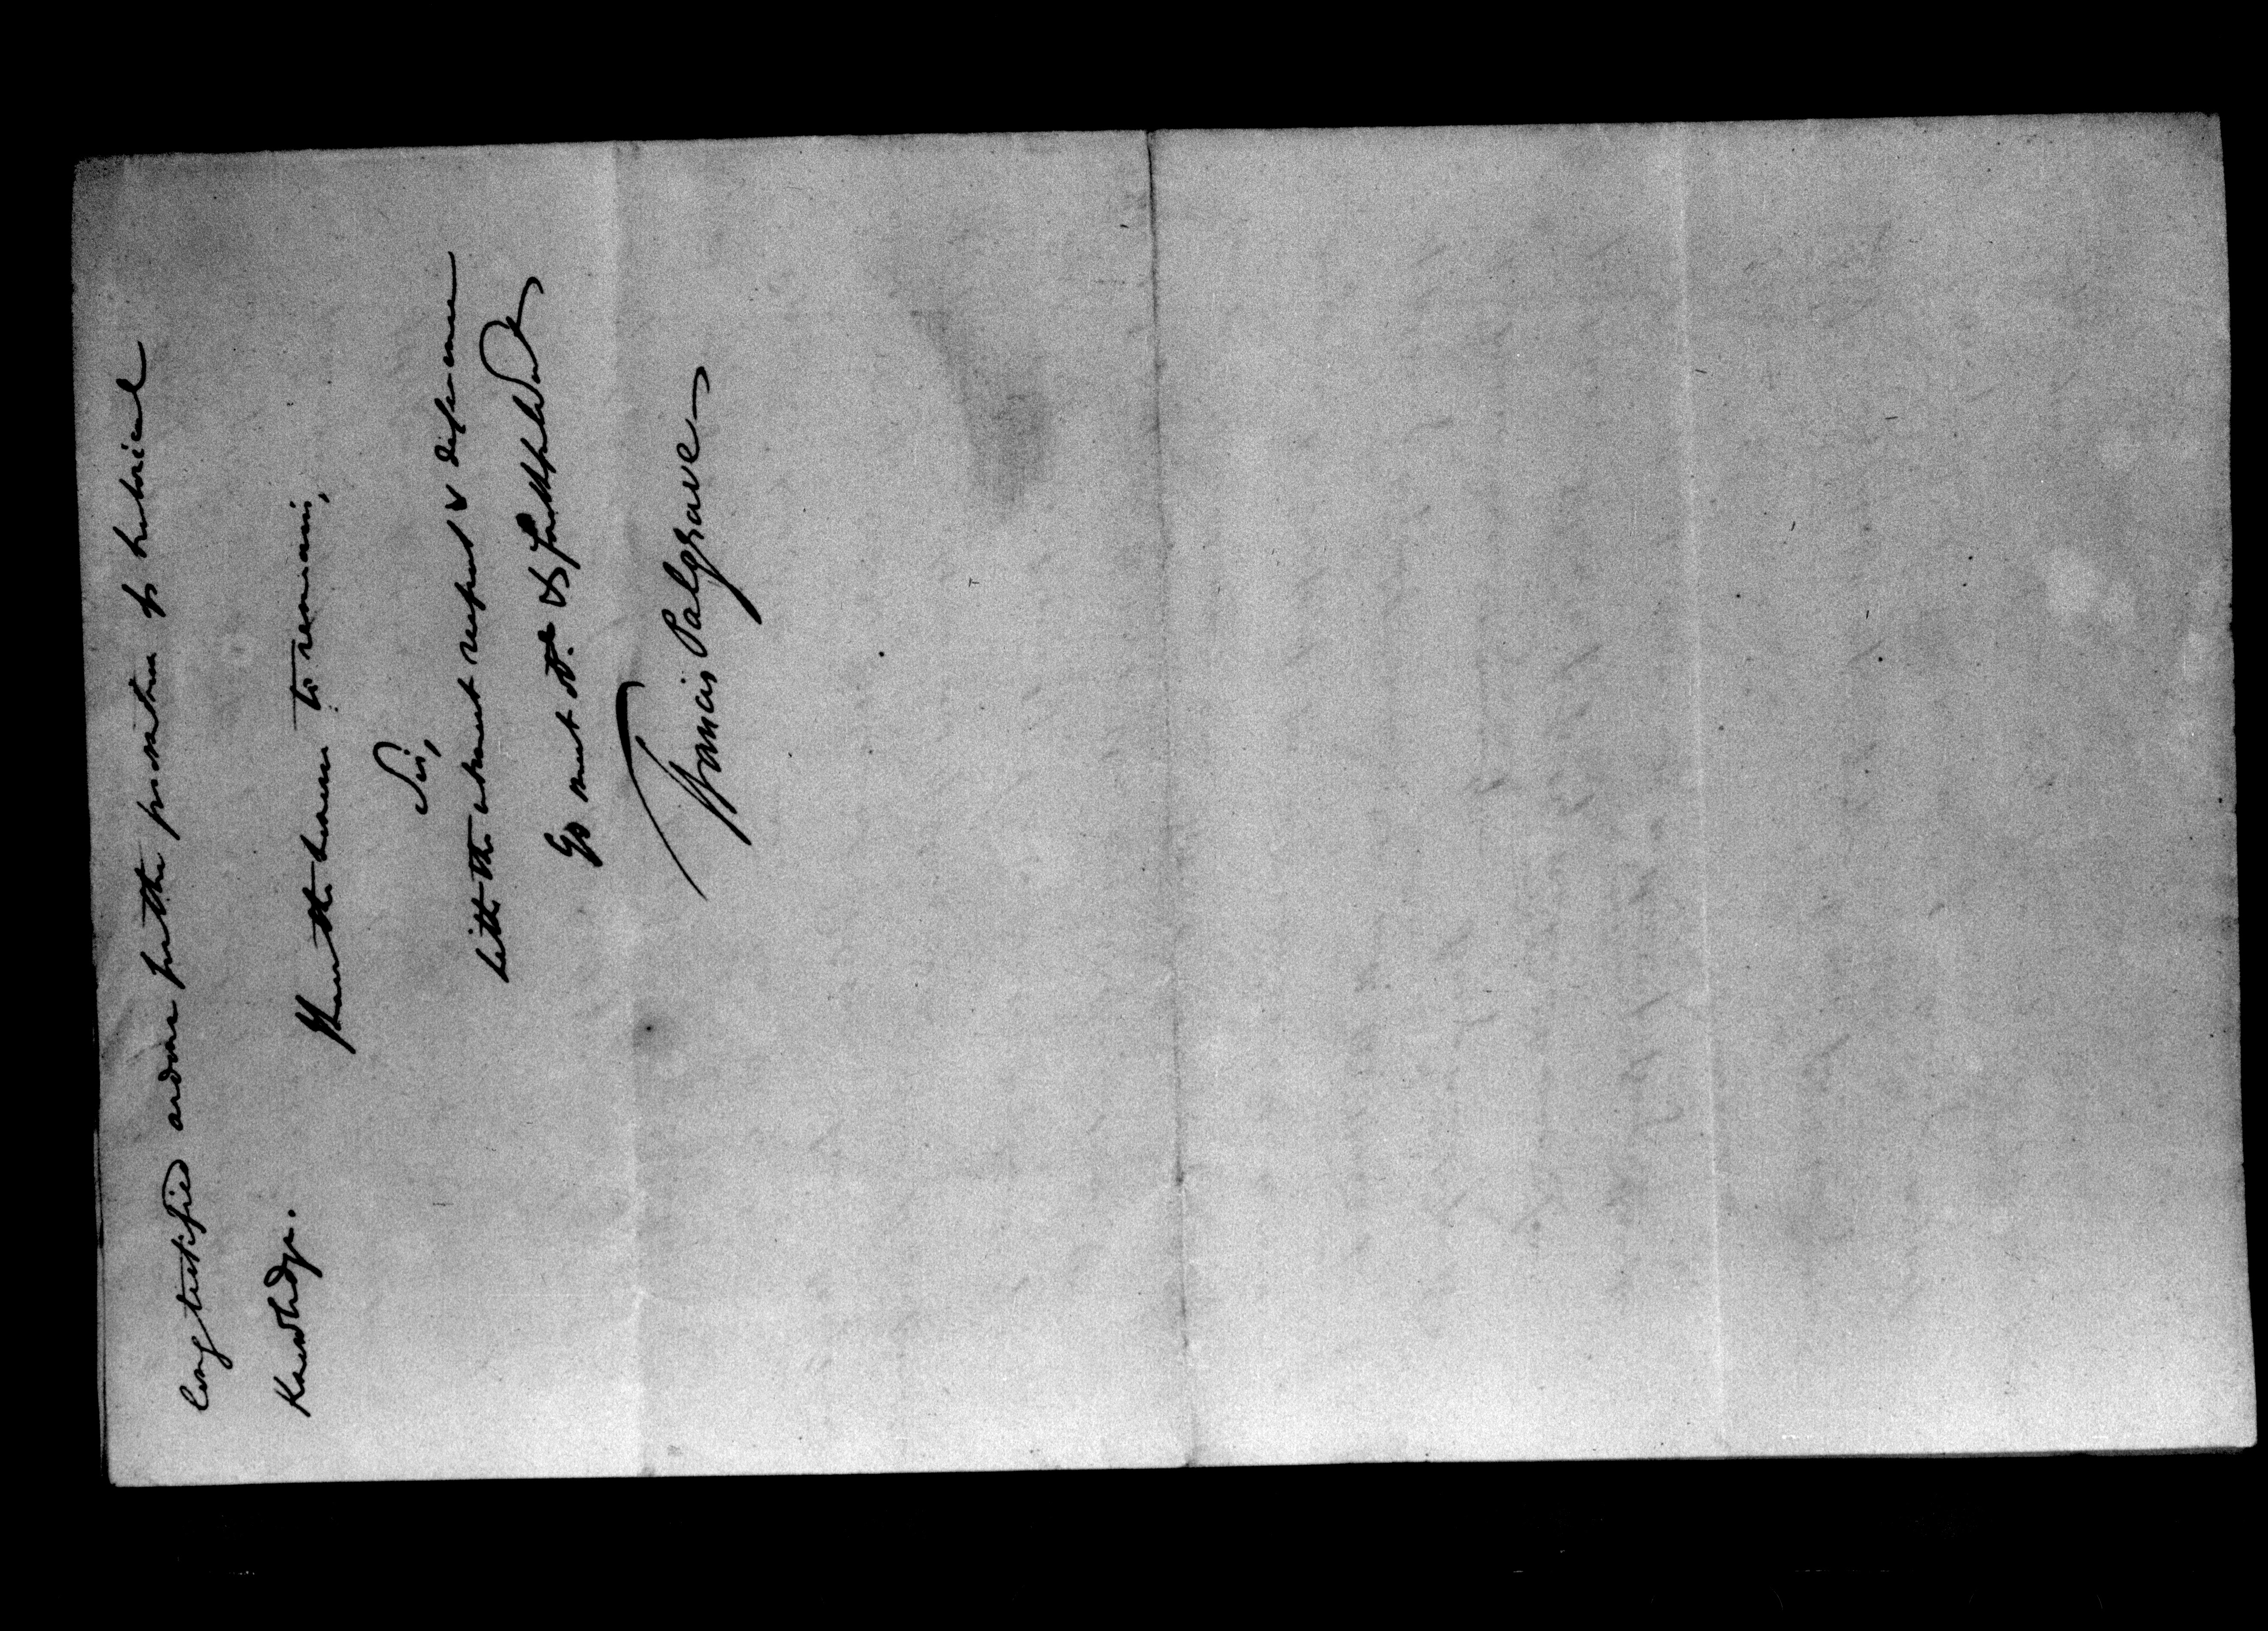 long testified ardour for the promotion of historical
Knowledge.
I have the honour to remain,
Sir,
With the utmost respect & deference
Yr most obt. & faithful Servt
Francis Palgrave